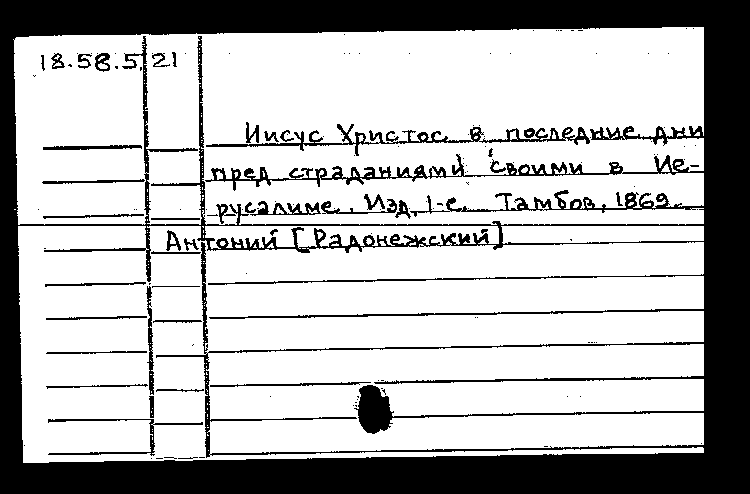 18.58.5.21
Иисус Христос в последние дни
пред страданиями своими в Ие-
русалиме. Изд. 1-е. Тамбов, 1869.
Антоний [Радонежский]